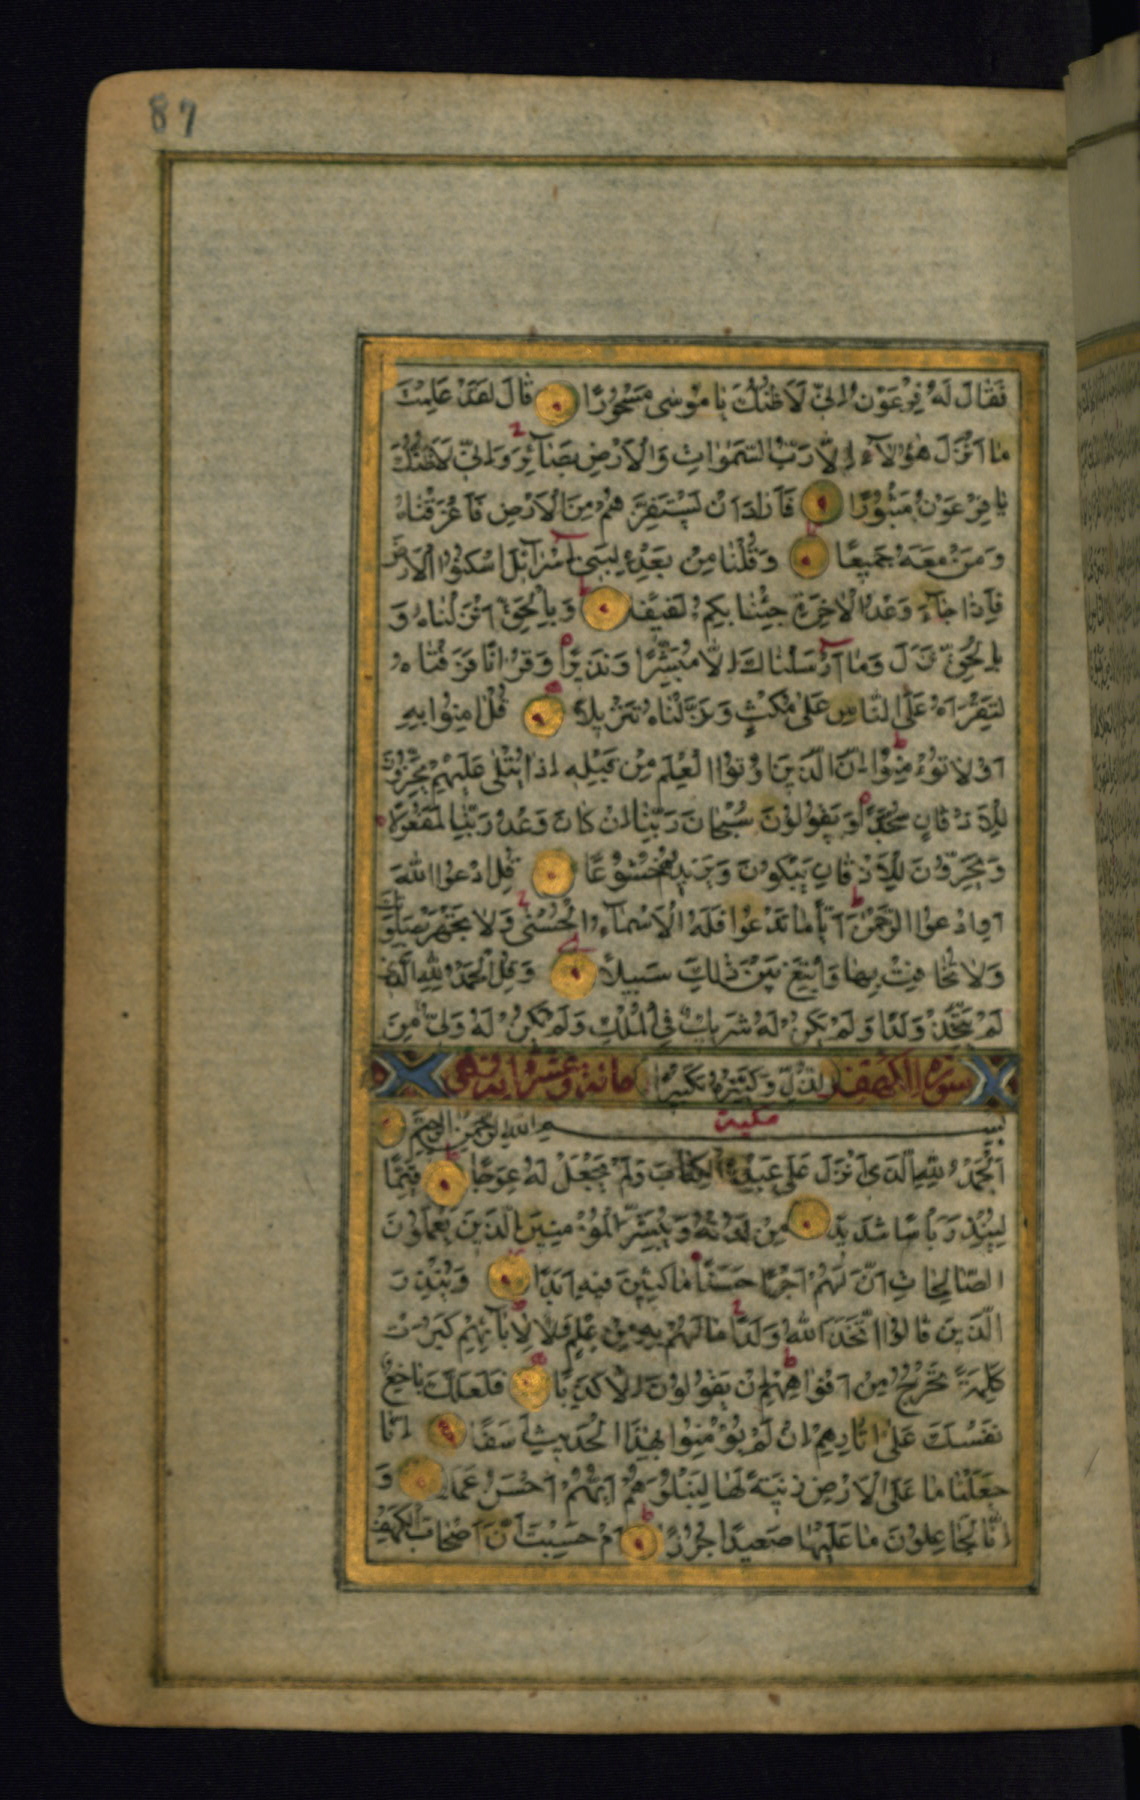 87
فَقَالَ لَهُ فِرْعَوْنُ اِنّى لَاَظُنُّكَ يَا مُوسٰى مَسْحُورًا قَالَ لَقَدْ عَلِمْتَ
مَا اَنْزَلَ هٰؤُلَآءِ اِلَّا رَبُّ السَّمٰوَاتِ وَالْاَرْضِ بَصَآئِرَ وَاِنّى لَاَظُنُّكَ
يَا فِرْعَوْنُ مَثْبُورًا فَاَرَادَ اَنْ يَسْتَفِزَّهُمْ مِنَ الْاَرْضِ فَاَغْرَقْنَاهُ
وَمَنْ مَعَهُ جَمِيعًا وَقُلْنَا مِنْ بَعْدِهِ لِبَنى اِسْرَآئلَ اسْكُنُوا الْاَرْضَ
فَاِذَا جَآءَ وَعْدُ الْاٰخِرَةِ جِئْنَا بِكُمْ لَفيفًا وَبِالْحَقِّ اَنْزَلْنَاهُ وَ
بِالْحَقِّ نَزَلَ وَمَا اَرْسَلْنَاكَ اِلَّا مُبَشِّرًا وَنَذيرًا وَقُرْاٰنًا فَرَقْنَاهُ
لِتَقْرَاَهُ عَلَى النَّاسِ عَلٰى مُكْثٍ وَنَزَّلْنَاهُ تَنْزيلًا قُلْ اٰمِنُوا بِهِ
اَوْ لَا تُؤْمِنُوا اِنَّ الَّذينَ اُوتُوا الْعِلْمَ مِنْ قَبْلِهِ اِذَا يُتْلٰى عَلَيْهِمْ يَخِرُّونَ
لِلْاَذْقَانِ سُجَّدًا وَيَقُولُونَ سُبْحَانَ رَبِّنَا اِنْ كَانَ وَعْدُ رَبِّنَا لَمَفْعُولًا
وَيَخِرُّونَ لِلْاَذْقَانِ يَبْكُونَ وَيَزيدُهُمْ خُشُوعًا قُلِ ادْعُوا اللهَ
اَوِ ادْعُوا الرَّحْمٰنَ اَيًّا مَا تَدْعُوا فَلَهُ الْاَسْمَآءُ الْحُسْنٰى وَلَا تَجْهَرْ بِصَلَوتِكَ
وَلَا تُخَافِتْ بِهَا وَابْتَغِ بَيْنَ ذٰلِكَ سَبيلًا وَقُلِ الْحَمْدُ لِلهِ الَّذى
لَمْ يَتَّخِذْ وَلَدًا وَلَمْ يَكُنْ لَهُ شَريكٌ فِى الْمُلْكِ وَلَمْ يَكُنْ لَهُ وَلِىٌّ مِنَ
سورة الكهف الذُّلِّ وَكَبِّرْهُ تَكْبيرًا مائة وعشر اية وهى
مكية
بِسْمِ اللهِ الرَّحْمٰنِ الرَّحيمِ
اَلْحَمْدُ لِلهِ الَّذى اَنْزَلَ عَلٰى عَبْدِهِ الْكِتَابَ وَلَمْ يَجْعَلْ لَهُ عِوَجًا قَيِّمًا
لِيُنْذِرَ بَاْسًا شَديدًا مِنْ لَدُنْهُ وَيُبَشِّرَ الْمُؤْمِنينَ الَّذينَ يَعْمَلُونَ
الصَّالِحَاتِ اَنَّ لَهُمْ اَجْرًا حَسَنًا مَاكِثينَ فيهِ اَبَدًا وَيُنْذِرَ
الَّذينَ قَالُوا اتَّخَذَ اللهُ وَلَدًا مَا لَهُمْ بِهِ مِنْ عِلْمٍ وَلَا لِاٰبَآئِهِمْ كَبُرَتْ
كَلِمَةً تَخْرُجُ مِنْ اَفْوَاهِهِمْ اِنْ يَقُولُونَ اِلَّا كَذِبًا فَلَعَلَّكَ بَاخِعٌ
نَفْسَكَ عَلٰى اٰثَارِهِمْ اِنْ لَمْ يُؤْمِنُوا بِهٰذَا الْحَديثِ اَسَفًا اِنَّا
جَعَلْنَا مَا عَلَى الْاَرْضِ زينَةً لَهَا لِنَبْلُوَهُمْ اَيُّهُمْ اَحْسَنُ عَمَلًا وَ
اِنَّا لَجَاعِلُونَ مَا عَلَيْهَا صَعيدًا جُرُزًا اَمْ حَسِبْتَ اَنَّ اَصْحَابَ الْكَهْفِ